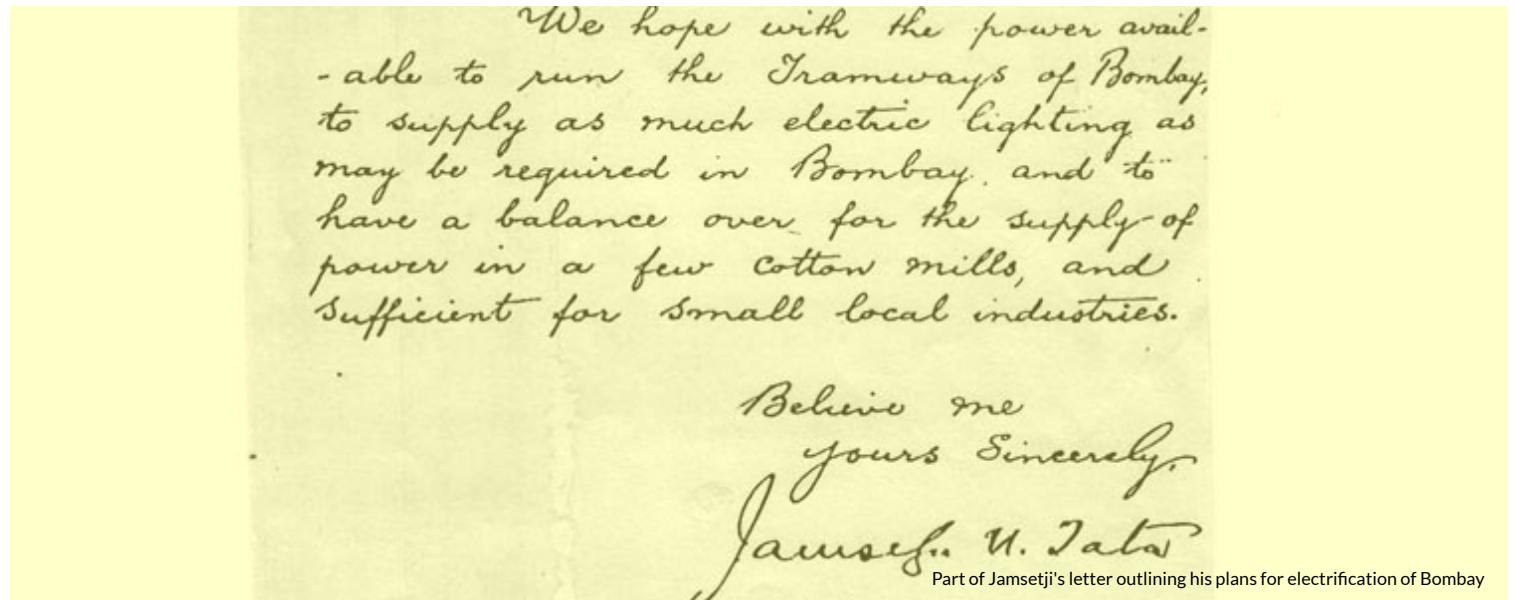 We hope with the power avail-
- able to run the Tramways of Bombay,
to supply as much electric lighting as
may be required in Bombay, and to
have a balance over for the supply of
power in a few cotton mills, and
sufficient for small local industries.
Believe me
yours Sincerely,
Jamsetji N. Tata
Part of Jamsetji's letter outlining his plans for electrification of Bombay